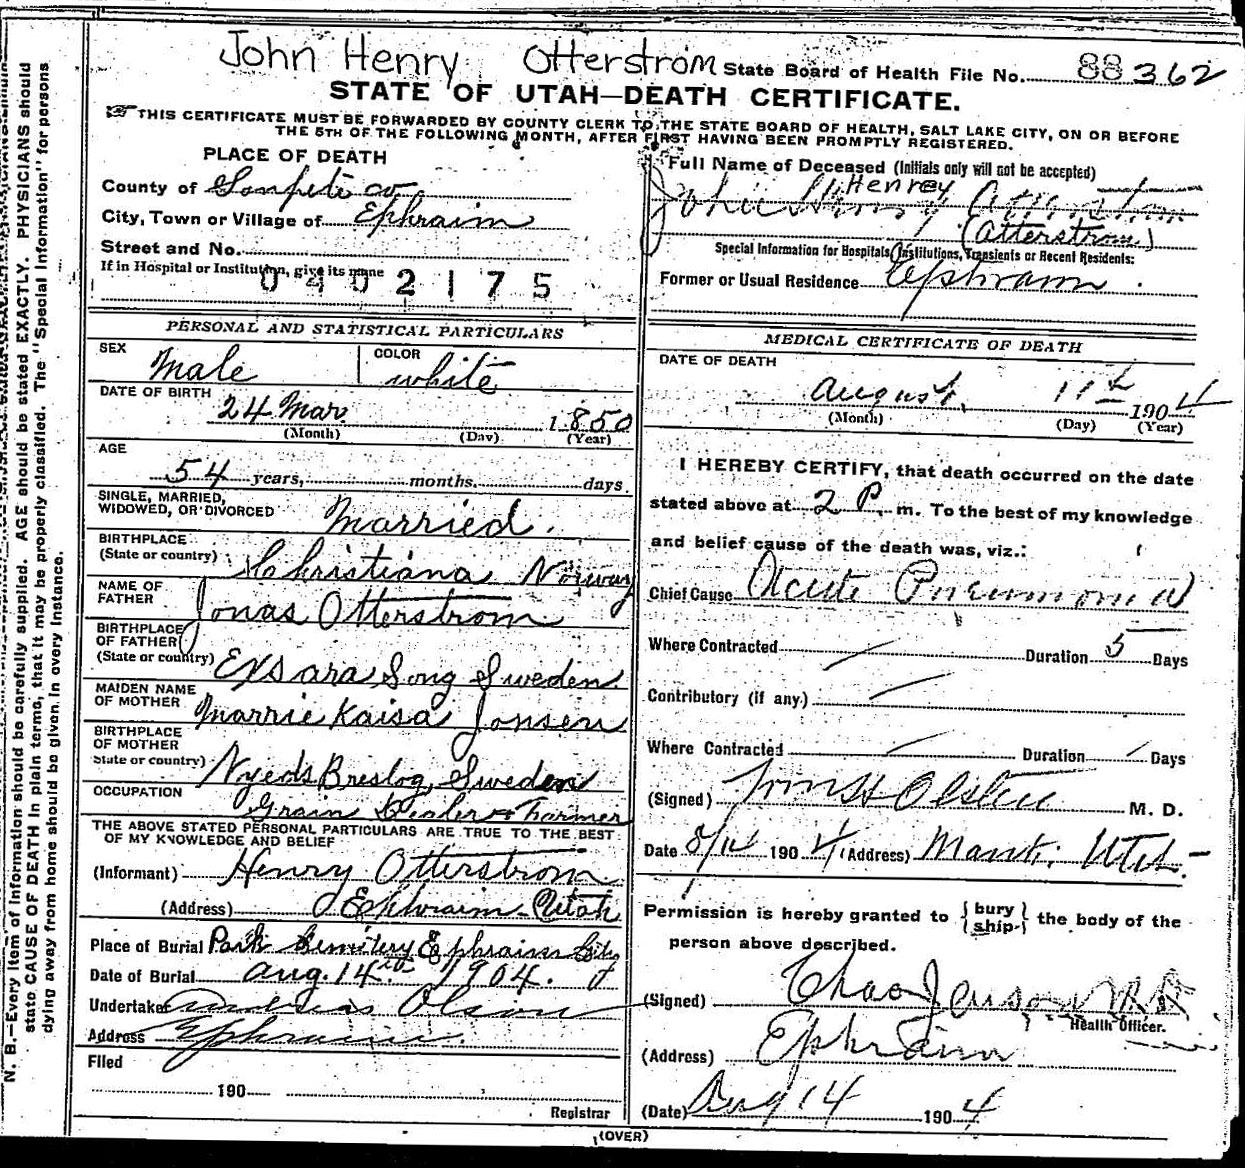 John Henry Otterstrom State Board of Health File No. 88 362
STATE OF UTAH—DEATH CERTIFICATE.
THIS CERTIFICATE MUST BE FORWARDED BY COUNTY CLERK TO THE STATE BOARD OF HEALTH, SALT LAKE CITY, ON OR BEFORE
THE 5TH OF THE FOLLOWING MONTH, AFTER FIRST HAVING BEEN PROMPTLY REGISTERED.
PLACE OF DEATH
County of Sanpete co
City, Town or Village of Ephraim
Street and No.
If in Hospital or Institution, give its name
0402175
Full Name of Deceased (Initials only will not be accepted)
Henrey
(Atterstrom)
Special Information for Hospitals, Institutions, Transients or Recent Residents:
Former or Usual Residence Ephraim
PERSONAL AND STATISTICAL PARTICULARS
SEX Male COLOR white
DATE OF BIRTH 24 Mar. 1850
(Month) (Day) (Year)
AGE
54 years, months. days.
SINGLE, MARRIED,
WIDOWED, OR DIVORCED Married.
BIRTHPLACE
(State or country) Christiana Norway
NAME OF
FATHER Jonas Otterstrom
BIRTHPLACE
OF FATHER
(State or country) Sweden
MAIDEN NAME
OF MOTHER Marrie Kaisa Jonsen
BIRTHPLACE
OF MOTHER
State or country) Sweden
OCCUPATION Grain Dealer & Farmer
THE ABOVE STATED PERSONAL PARTICULARS ARE TRUE TO THE BEST
OF MY KNOWLEDGE AND BELIEF
(Informant) Henry Otterstrom
(Address) Ephraim Utah
Place of Burial Park Cemitery Ephraim City
Date of Burial Aug. 14th 1904.
Undertaker Andreas Olson
Address Ephraim.
Filed
190
Registrar
MEDICAL CERTIFICATE OF DEATH
DATE OF DEATH
August 11th 1904
(Month) (Day) (Year)
I HEREBY CERTIFY, that death occurred on the date
stated above at 2 P. m. To the best of my knowledge
and belief cause of the death was, viz.:
Chief Cause Acute Pneumonia
Where Contracted Duration 5 Days
Contributory (if any)
Where Contracted Duration Days
(Signed) M. D.
Date 1904 (Address) Manti Utah
Permission is hereby granted to {bury
ship} the body of the
person above described.
(Signed) Chas Jensen
Health Officer.
(Address) Ephraim
(Date) Aug 14 1904
(OVER)
N. B.—Every item of information should be carefully supplied. AGE should be stated EXACTLY. PHYSICIANS should
state CAUSE OF DEATH in plain terms, that it may be properly classified. The "Special Information" for persons
dying away from home should be given in every instance.